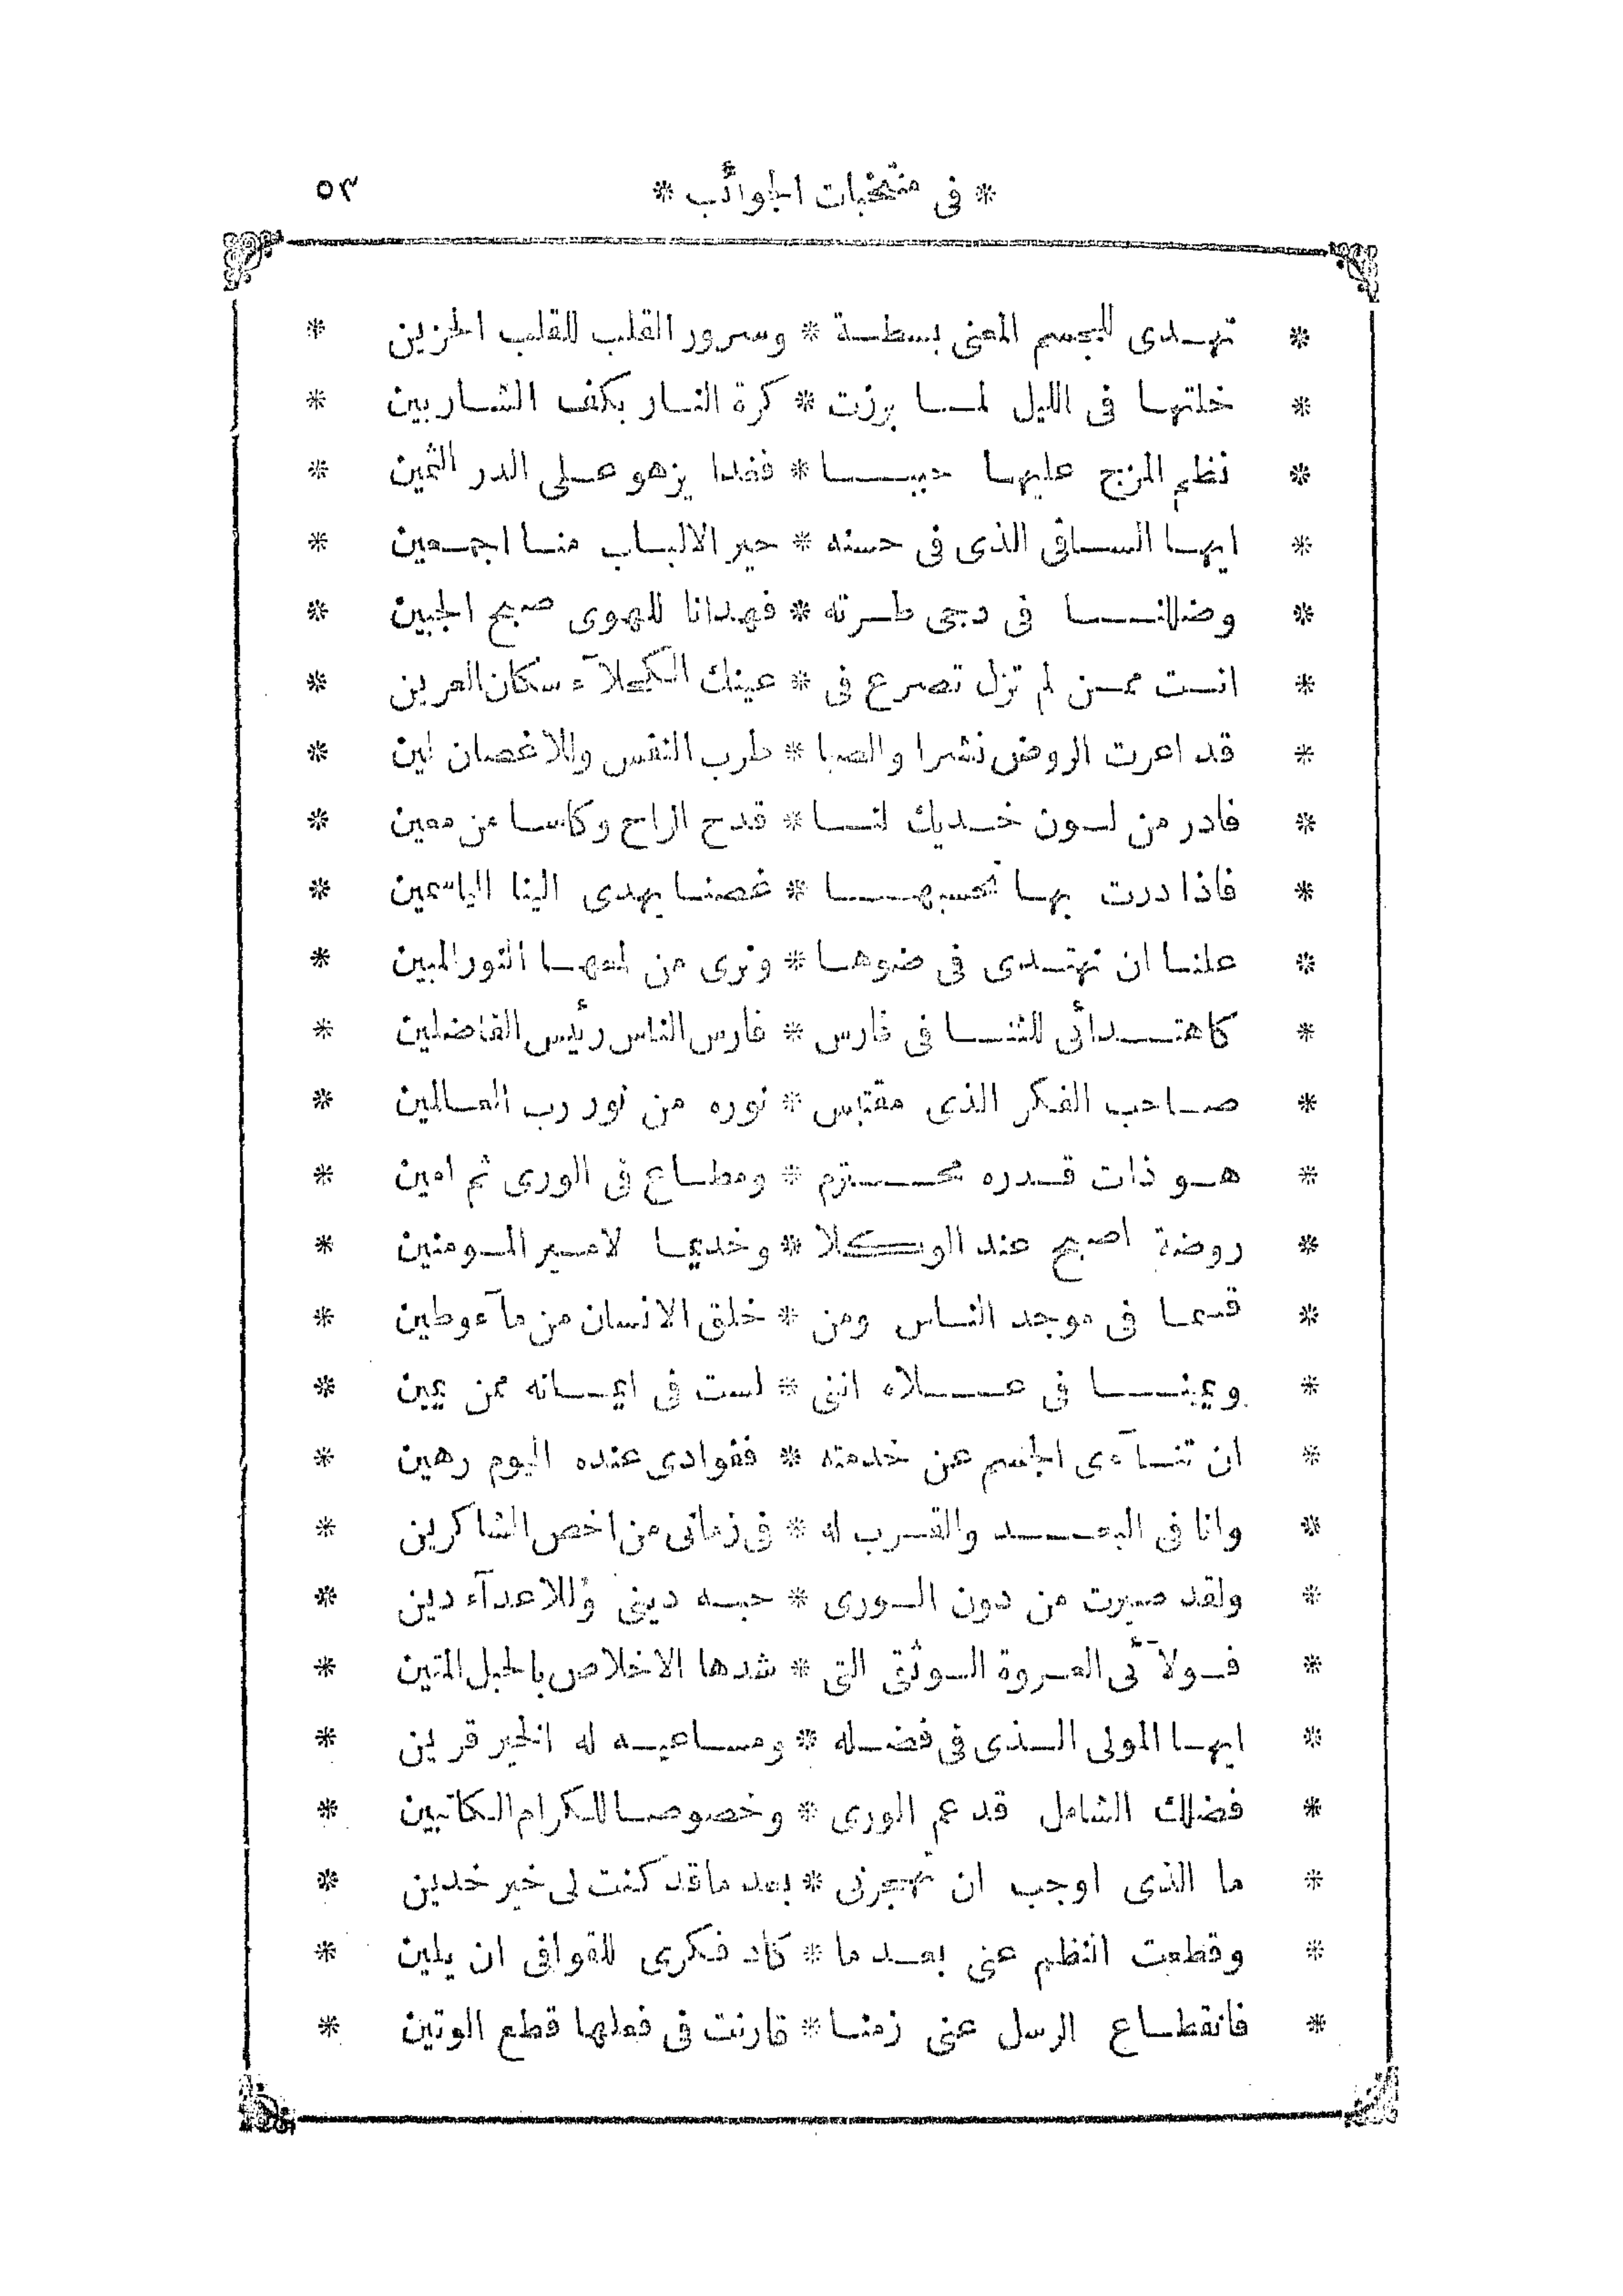 * فى منتخبات الجوائب * ٥٣
* تهدى للجسم المعنى بسطة * وسرور القلب للقلب الحزين *
* خلتها فى الليل لما برزت * كرة النار بكف الشاربين *
* نظم المزج عليها حببا * فغدا يزهو على الدر الثمين *
* ايها الساقى الذى فى حسنه * حير الالباب منا اجمعين *
* وضللنا فى دجى طرته * فهدانا للهوى صبح الجبين *
* انست ممن لم تزل تصرع فى * عينك الكحلآء سكان العرين *
* قد اعرت الروض نشرا والصبا * طرب النفس وللاغصان لين *
* فادر من لون خديك لنا * قدح الراح وكاسا من معين *
* فاذا درت بها تحسبها * غصنا يهدى الينا الياسمين *
* علنا ان نهتدى فى ضوها * ونرى من لمعها النور المبين *
* كاهتدائى للثنا فى فارس * فارس الناس رئيس الفاضلين *
* صاحب الفكر الذى مقتبس * نوره من نور رب العالمين *
* هو ذات قدره محترم * ومطاع فى الورى ثم امين *
* روضة اصبح عند الوكلا * وخديما لامير المومنين *
* قسما فى موجد الناس ومن * خلق الانسان من مآء وطين *
* ويمينا فى علاه اننى * لست فى ايمانه ممن يمين *
* ان تنآءى الجسم عن خدمته * ففوادى عنده اليوم رهين *
* وانا فى البعد والقرب له * فى زمانى من اخص الشاكرين *
* ولقد صيرت من دون الورى * حبه دينى وللاعدآء دين *
* فولآئى العروة الوثقى التى * شدها الاخلاص بالحبل المتين *
* ايها المولى الذى فى فضله * ومساعيه له الخير قرين *
* فضلك الشامل قد عم الورى * وخصوصا للكرام الكاتبين *
* ما الذى اوجب ان تهجرنى * بعد ما قد كنت لى خير خدين *
* وقطعت النظم عنى بعد ما * كاد فكرى للقوافى ان يلين *
* فانقطاع الرسل عنى زمنا * قارنت فى فعلها قطع الوتين *